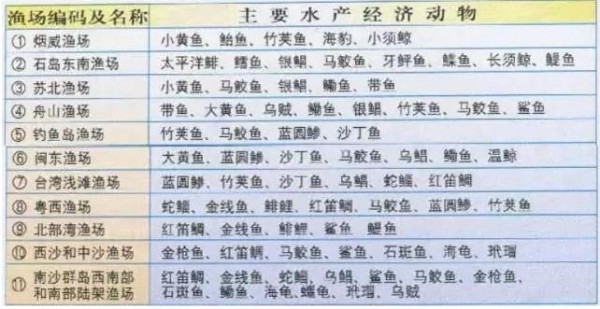 渔场编码及名称 主要水产经济动物
① 烟威渔场 小黄鱼、鲐鱼、竹荚鱼、海豹、小须鲸
② 石岛东南渔场 太平洋鲱、鳕鱼、银鲳、马鲛鱼、牙鲆鱼、鲽鱼、长须鲸、鳀鱼
③ 苏北渔场 小黄鱼、马鲛鱼、银鲳、鳓鱼、带鱼
④ 舟山渔场 带鱼、大黄鱼、乌贼、鳓鱼、银鲳、竹荚鱼、马鲛鱼、鲨鱼
⑤ 钓鱼岛渔场 竹荚鱼、马鲛鱼、蓝圆鲹、沙丁鱼
⑥ 闽东渔场 大黄鱼、蓝圆鲹、沙丁鱼、马鲛鱼、乌鲳、鳓鱼、温鲸
⑦ 台湾浅滩渔场 蓝圆鲹、竹荚鱼、沙丁鱼、乌鲳、蛇鲻、红笛鲷
⑧ 粤西渔场 蛇鲻、金线鱼、鲱鲤、红笛鲷、马鲛鱼、蓝圆鲹、竹荚鱼
⑨ 北部湾渔场 红笛鲷、金线鱼、鲱鲤、鲨鱼 鳀鱼
⑩ 西沙和中沙渔场 金枪鱼、红笛鲷、马鲛鱼、鲨鱼、石斑鱼、海龟、玳瑁
⑪ 南沙群岛西南部 红笛鲷、金线鱼、蛇鲻、乌鲳、鲨鱼、马鲛鱼、金枪鱼、
和南部陆架渔场 石斑鱼、鳓鱼、海龟、蠵龟、玳瑁、乌贼